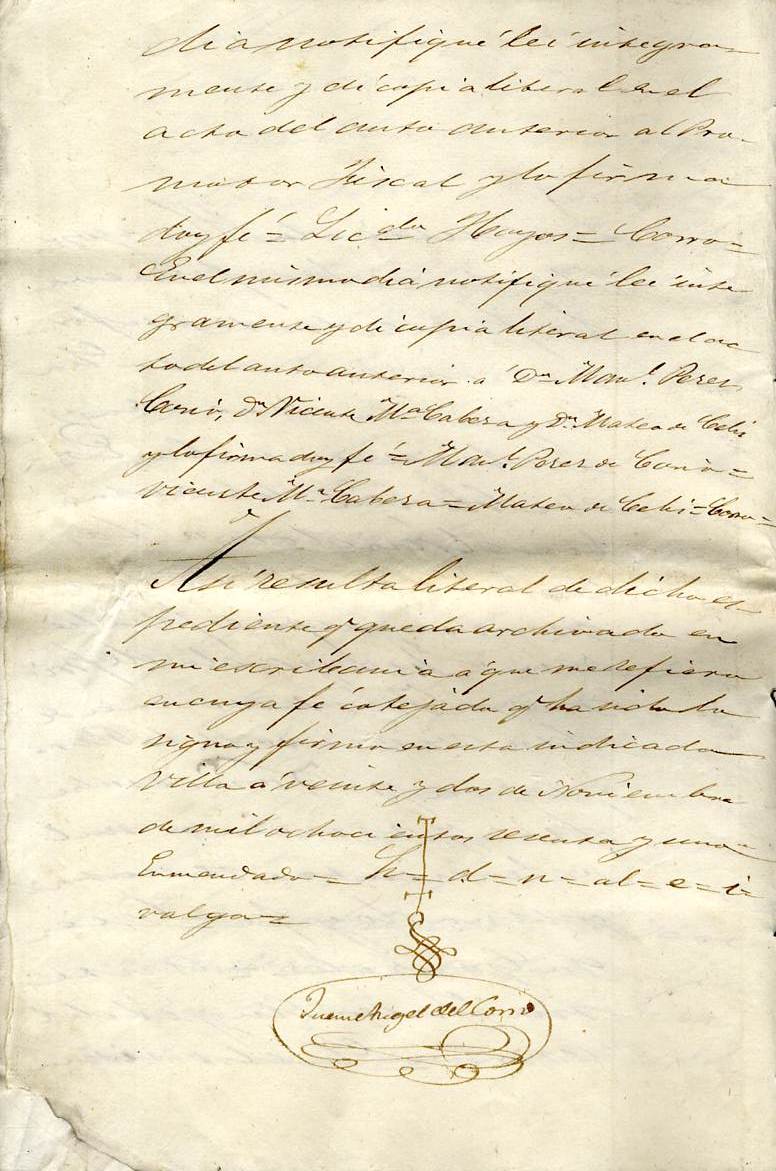 dia notifiqué leí integra-
mente y dí copia literal en el
acto del auto anterior al Pro-
motor Fiscal y lo firma
doy fé = Licdo Hoyos = Corro =
En el mismo dia notifiqué leí inte
gramente y dí copia literal en el ac
to del auto anterior á Dn Manl. Perez
Corio, Dn Vicente Ma Cabeza y Dn Mateo de Celis
y lo firma doy fé = Manl. Perez de Corio =
Vicente Ma Cabeza = Mateo de Celis = Corro =
Así resulta literal de dicho es
pediente q queda archivado en
mi escribania á que me refiero
en cuya fé cotejada q ha sido lo
signo y firmo en esta indicada
Villa á veinte y dos de Noviembre
de mil ochocientos sesenta y uno =
Enmendado = h = d = n = al = e = i =
valga =
Angel del Corro